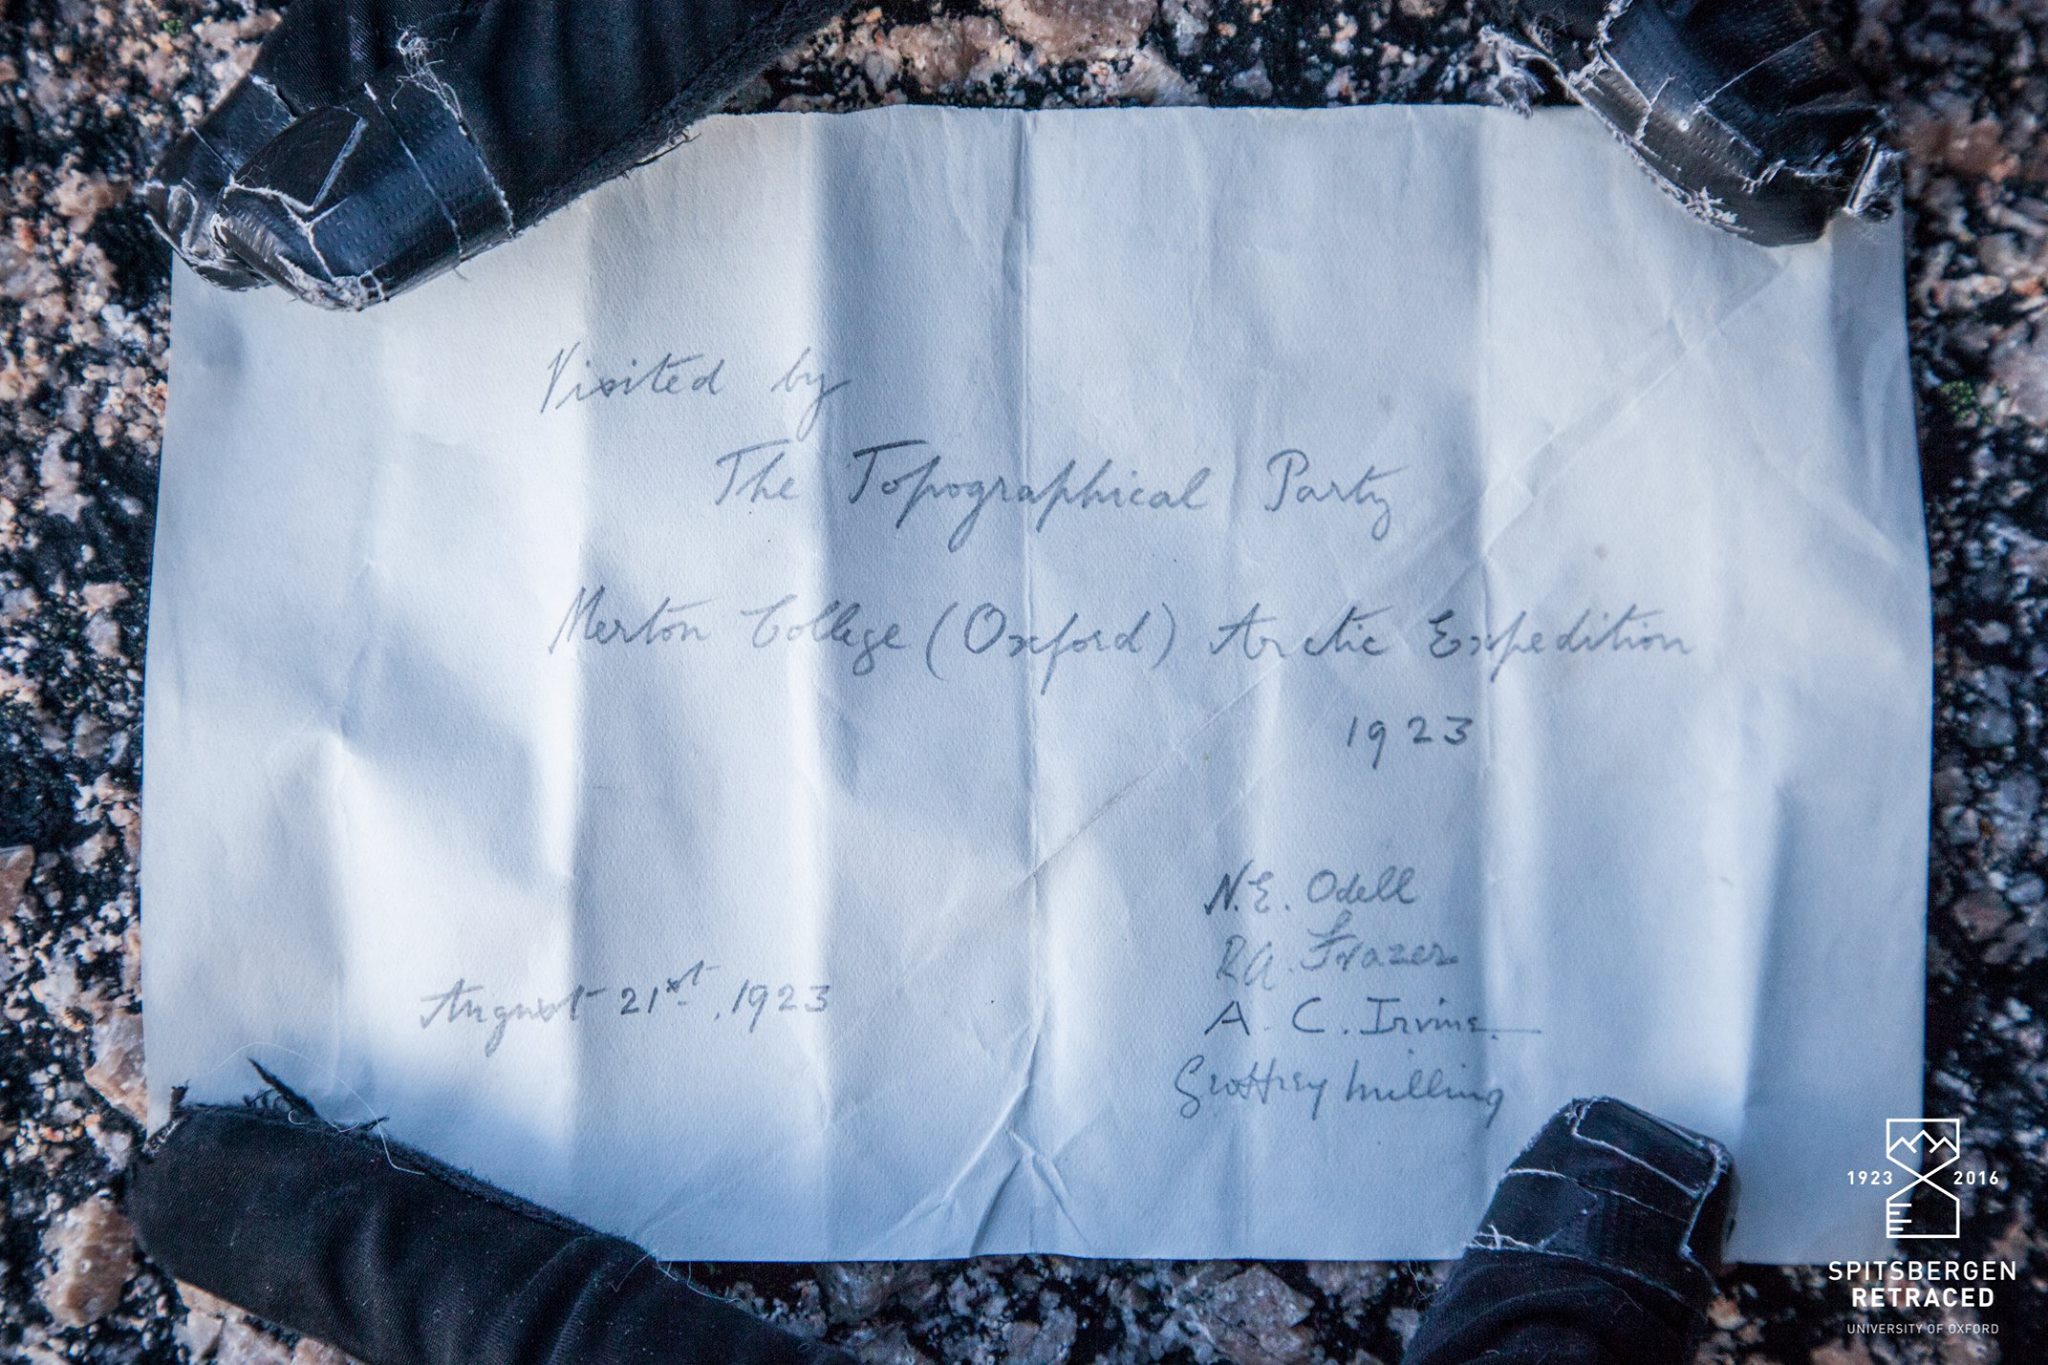 Visited by
The Topographical Party
Merton College (Oxford) Arctic Expedition
1923
N.E. Odell
R.A. Frazer
A. C. Irvine
Geoffrey Milling
August 21st, 1923
1923 2016
SPITSBERGEN
RETRACED
UNIVERSITY OF OXFORD